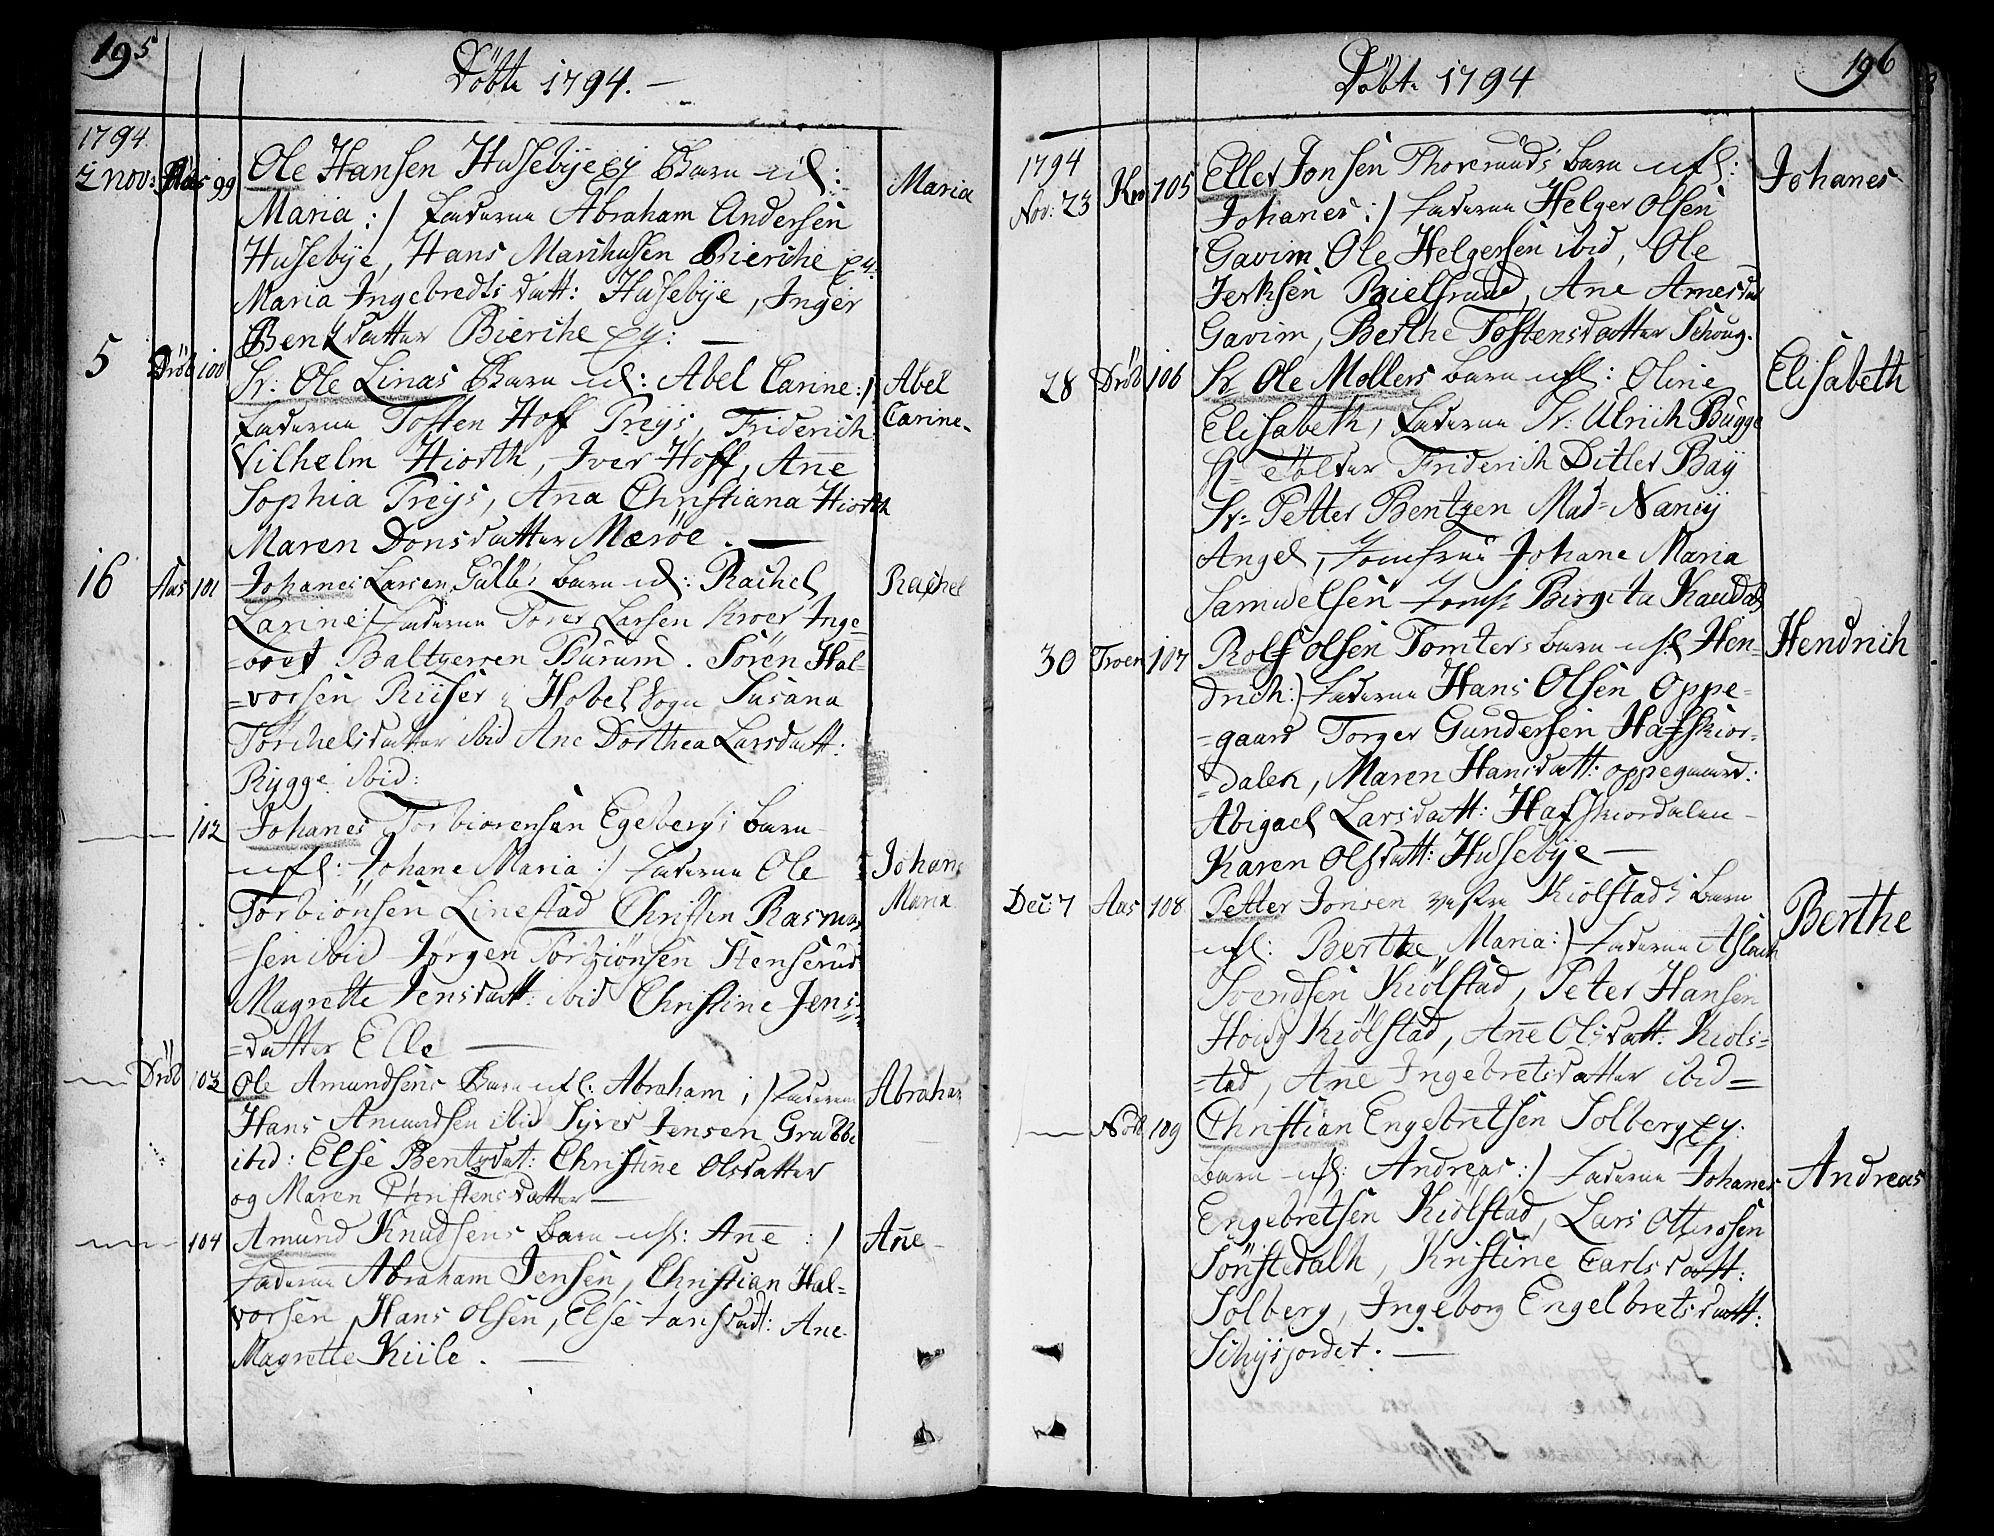 195
Döbte 1794. —
1794
2 nov: Aas 99 Ole Hansen Hussebÿe Ey Barn
Maria
Maria :/ Faderne Abraham Andersen
Hussebÿe, Hans Marthusen Bierche Ey:
Maria Ingebredts datt: Hussebÿe, Inger
Bentzdatter Bierche Ey: —
5 Dröb 100 Sr: Ole Linaas Barn : Abel Carine :/
Abel
Carine
Faderne Tosten Hoff Preÿs, Friderich
Vilhelm Hiorth, Iver Hoff, Añe
Sophia Preÿs, Aña Christiana Hiorth
Maren Donsdatter Mæröe. —
16 Aas 101 Johanes Larsen Gulles Barn : Rachel
Rachel
Larine :/ Faderne Porer Larsen Kroer Inge=
=bret Baltzersen Burum. Sören Hal=
=vorsen Riiser i Hobel Sogn Susana
Torchelsdatter ibid Ane Dorthea Larsdatt:
Rÿgge ibid:
102 Johanes Torbiorensen Egebergs barn
ufl: Johane Maria :/ Faderne Ole
Johane
Maria
Torbiönsen Linestad Christen Rasmus
=sen ibid Jörgen Torbiönsen Stenserud
Magrette Jensdatt: ibid Christine Jens=
=datter Elle —
Dröb 103 Ole Amundsens Barn ufl: Abraham ; / Faderne
Abraham
Hans Amundsen ibid Sÿver Jensen Grubbe
ibid: Else Bentzdat: Christiñe Olsdatter
og Maren Christensdatter —
104 Amund Knudsens Barn ufl: Añe : /
Añe
Faderne Abraham Jensen, Christian Hal=
vorsen, Hans Olsen, Else Larsdat: Ane
Magrette Kiile. —
196
Döbte 1794
1794
Nov: 23 Kro 105 Eller Jonsen Thoreruuds barn ufl:
Johanes
Johanes :/ Faderne Helger Olsen
Gavim Ole Helgersen ibid, Ole
Jerksen Bielsrud, Ane Arnesdat
Gavim, Berthe Tostensdatter Schoug.
28 Dröb 106 Sr Ole Möllers barn ufl: Olivie
Elisabeth
Elisabeth, Faderne Sr: Ulrich Bugge
Friderich Ditlev Baÿ
Sr= Petter Bentzen Mad= Nancÿ
Angel, Jomfrue Johane Maria
Samuelsen Jomfr Birgeta Kaudal
30 Froen 107 Rolf Olsen Tomters barn ufl Hen=
Hendrich
drich :/ Faderne Hans Olsen Oppe=
=gaard Torger Gundersen Hafskior=
=dalen, Maren Hansdatt: oppegaard:
Abigael Larsdatt: Hafskiordalen —
Karen Olsdatt: Hussebÿe —
Dec: 7 Aas 108 Petter Jonsen vestre Kiölstads Barn
Berthe
ufl: Berthe Maria :/ Faderne Aslach
Svendsen Kiölstad, Peter Hansen
Houg Kiölstad, Añe Olsdatt: Kiols=
=tad, Añe Ingebretsdatter ibid =
Nödb 109 Christian Engebretsen Solberg Ey:
barn ufl: Andreas :/ Faderne Johanes
Andreas
Engebretsen Kiölstad, Lars Ottersen
Sönstedalh, Kristine Carlsdatt:
Solberg, Ingeborg Engelbretsdatt:
Schÿsjordet. —